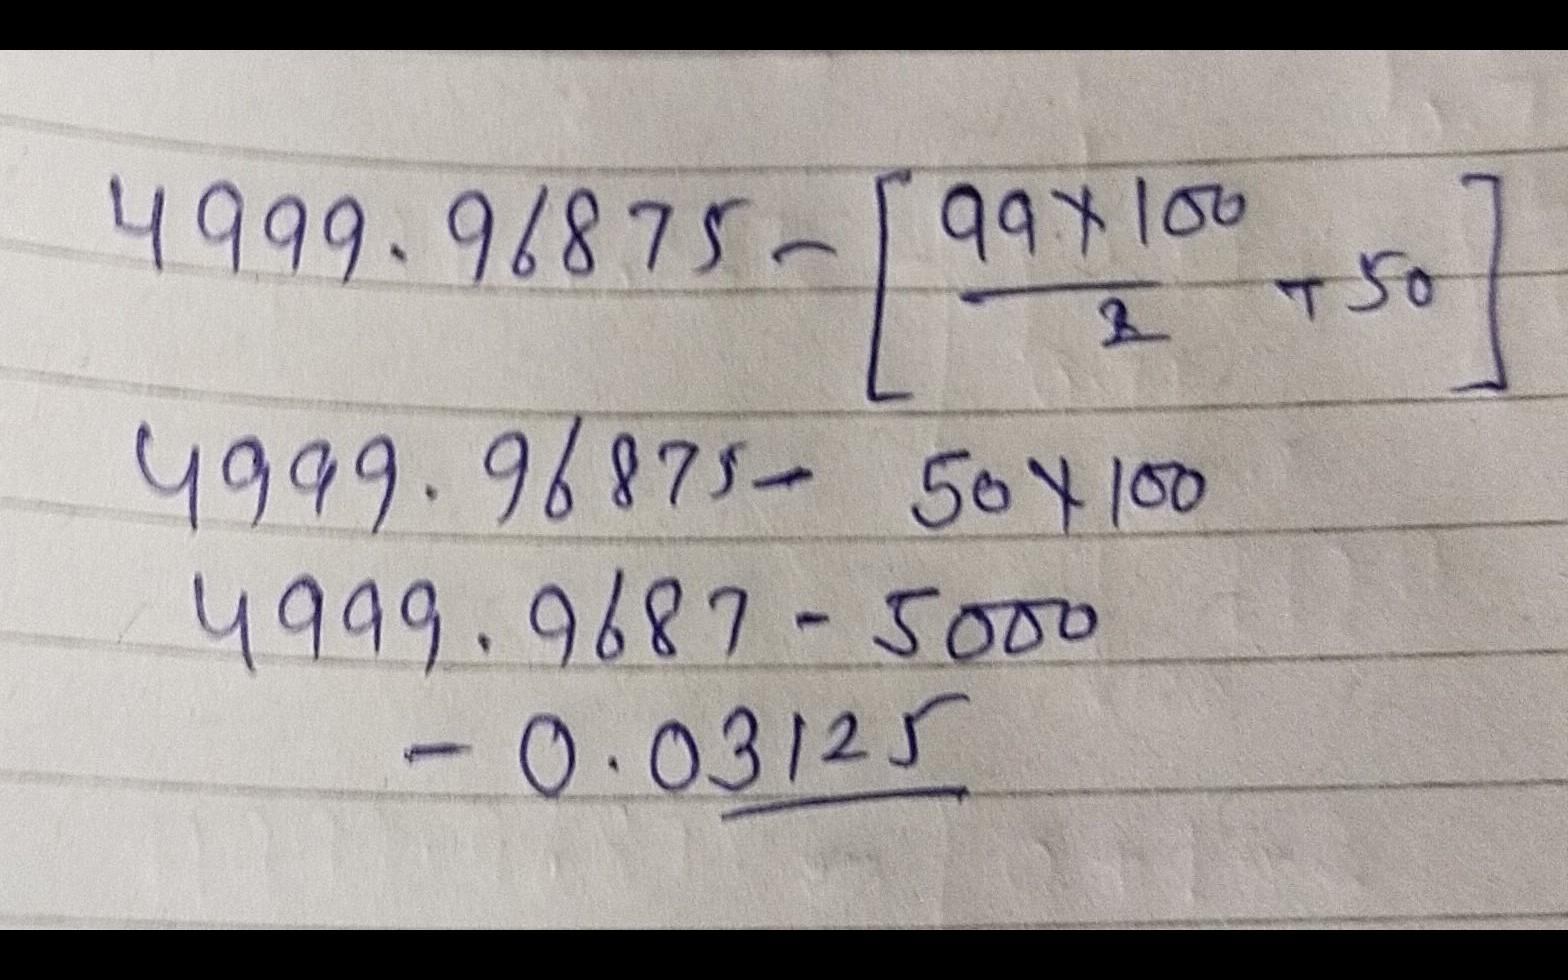 4999.96875 - [99×100/2 + 50]
4999.96875 - 50×100
4999.9687 - 5000
- 0.03125